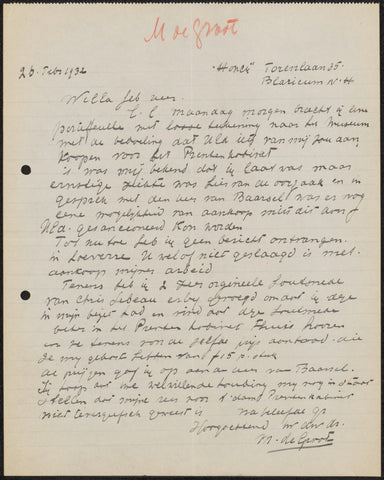 M de Groot
26. Febr 1932 "Honck" Torenlaan 35
Blaricum N-H
maandag morgen bracht ik
portefeuille met losse teekening naar het Museum
met de bedoeling dat U iets van mij zou aan
koopen voor het Prentenkabinet
was mij bekend dat
ernstige ziekte was hier van de oorzaak en in
gesprek met den heer van Baarsel was er nog
eene mogelijkheid van aankoop mits dit door
gesanctioneerd kon worden
Tot nu toe heb ik geen bericht ontvangen.
in hoeverre U wel of niet geslaagd is met
aankoop mijner arbeid
Tevens heb ik 2 zeer origineele houtsneden
van Chris Lebeau erbij gevoegd omdat ik deze
in mijn bezit had en vind dat deze houtsneden
beter in het Prenten kabinet thuis hooren
en ze tevens voor de zelfde prijs aanbood. die
ze mij gekost hebben van f 15 p. stuk
de prijzen gaf ik op aan den heer van Baarsel.
Ik hoop dat uwe welwillende houding mij nog in staat
stellen dat mijne reis naar A'dam Prentenkabinet
niet tevergeefsch geweest is na beleefde gr
Hoogachtend
M. de Groot